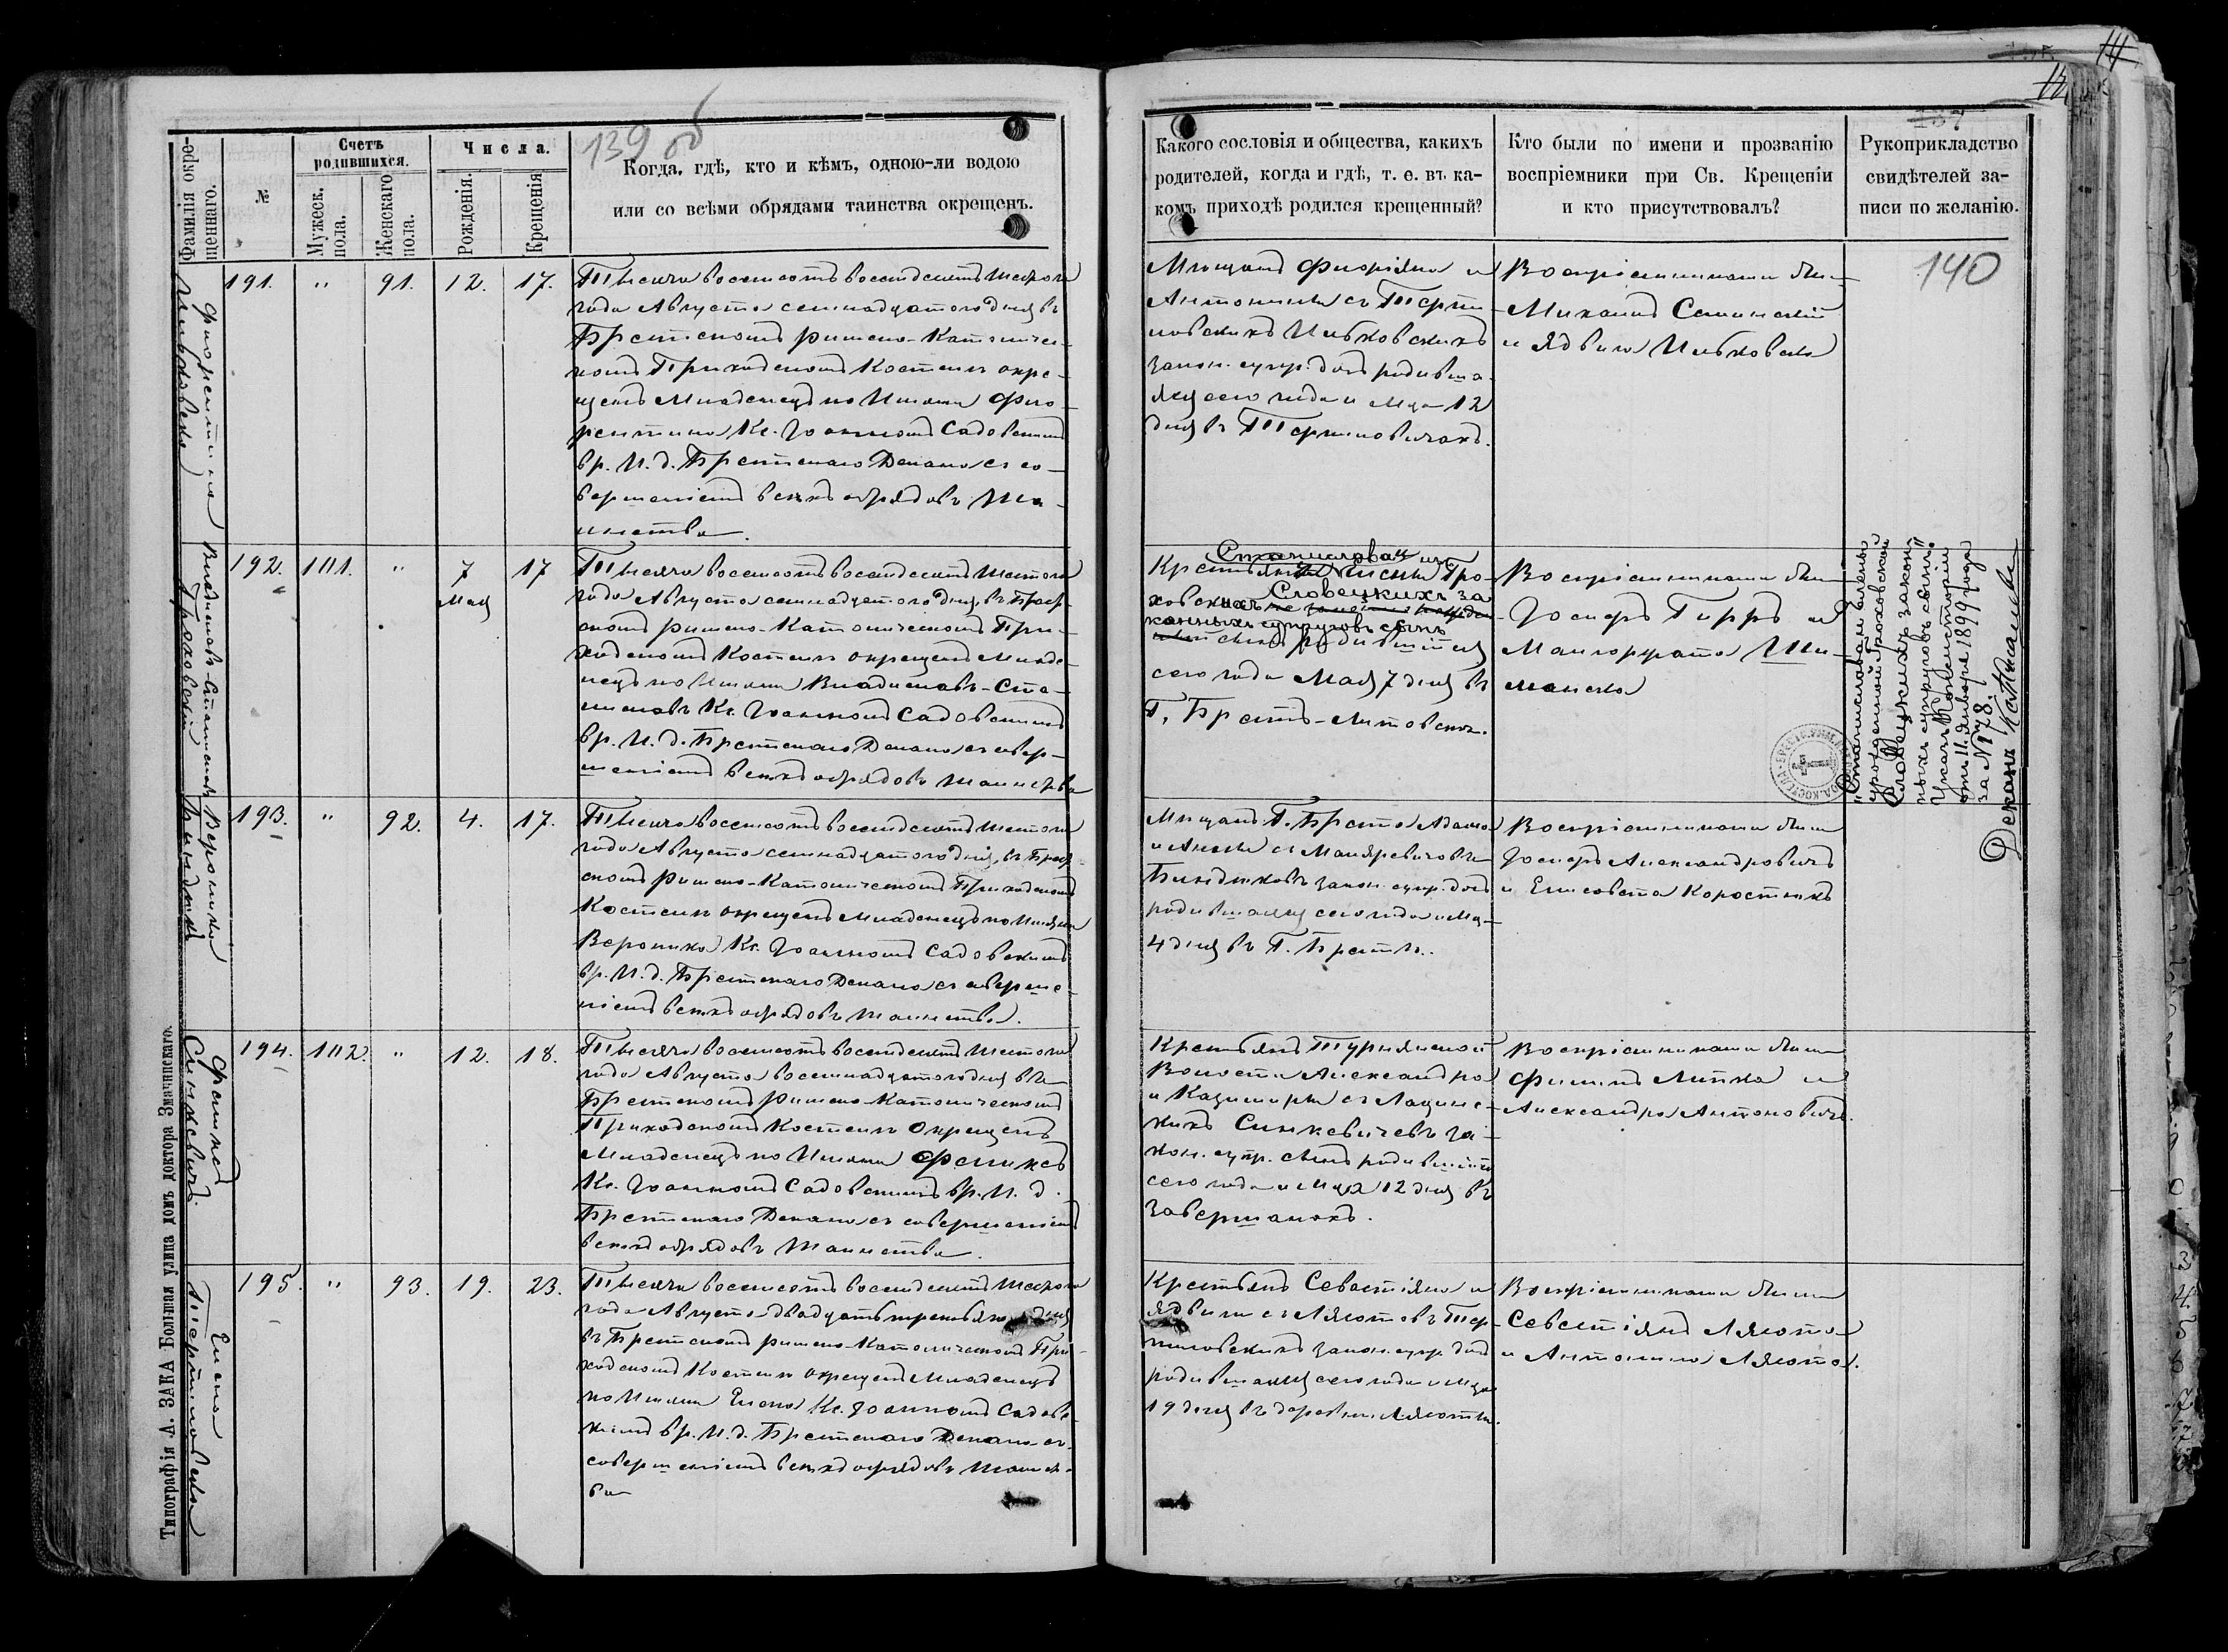 139 об
Фамилія окре-
щеннаго.
№
Счетъ
родившихся.
Мужеск.
пола.
Женскаго
пола.
Числа.
Рожденія.
Крещенія
Когда, гдѣ, кто и кѣмъ, одною-ли водою
или со всѣми обрядами таинства окрещенъ.
Флорентина
191. " 91. 12. 17.
Тысяча восемсотъ восемдесятъ шестого
года Августа семнадцатого дня въ
Брестскомъ римско-Католичес-
комъ Приходскомъ Костелѣ окре-
щенъ Младенецъ по Имени Фло-
рентина Кс. Іоанномъ Садовскимъ
вр. И. д. Брестскаго Декана съ со-
вершеніемъ всѣхъ обрядовъ Та-
инства.
Владиславъ-Станиславъ
Гроховскій
192. 101. " 7 17
Мая
Тысяча восемсотъ восемдесятъ шестого
года Августа семнадцатого дня, въ Брест-
скомъ римско-Католическомъ При-
ходскомъ Костелѣ окрещенъ Младе-
нецъ по Имени Владиславъ-Ста-
ниславъ Кс. Іоанномъ Садовскимъ
вр. И. д. Брестскаго Декана съ совер-
шеніемъ всѣхъ обрядовъ Таинства
Вероника
Биндюкъ
193. " 92. 4. 17.
Тысяча восемсотъ восемдесятъ шестого
года Августа семнадцатого дня, въ Брест-
скомъ Римско-Католическомъ Приходскомъ
Костелѣ окрещенъ Младенецъ по Имени
Вероника Кс. Іоанномъ Садовскимъ
вр. И. д. Брестскаго Декана съ соверше-
ніемъ всѣхъ обрядовъ Таинства.
Феликсъ
Синкевичъ
194. 102. " 12. 18.
Тысяча восемсотъ восемдесятъ шестого
года Августа восемнадцатого дня въ
Брестскомъ Римско-Католическомъ
Приходскомъ Костелѣ Окрещенъ
Младенецъ по Имени Феликсъ
Кс. Іоанномъ Садовскимъ вр. И. д.
Брестскаго Декана съ совершеніемъ
всѣхъ обрядовъ Таинства.
Елена
195. " 93. 19. 23.
Тысяча восемсотъ восемдесятъ шестого
года Августа двадцать третьяго дня
въ Брестскомъ римско-Католическомъ При-
ходскомъ Костелѣ окрещенъ Младенецъ
по Имени Елена Кс. Іоанномъ Садовс-
кимъ вр. И. д. Брестскаго Декана съ
совершеніемъ всѣхъ обрядовъ Таинст-
ва
Типографія А. ЗАКА Большая улица домъ доктора Значинскаго.
Какого сословія и общества, какихъ
родителей, когда и гдѣ, т. е. въ ка-
комъ приходѣ родился крещенный?
Кто были по имени и прозванію
воспріемники при Св. Крещеніи
и кто присутствовалъ?
Рукоприкладство
свидѣтелей за-
писи по желанію.
137
140
Мѣщанъ Флоріяна и
Антонины съ
законн. супр. дочь родивша-
яся сего года и М-ца 12
дня въ
Воспріемниками были
Михаилъ
и Ядвига
Станислова и
Крестьянки Елены Гро-
Словецкихъ за
ховскихъ
конныхъ супруговъ сынъ
сынъ родившійся
сего года Мая 7 дня въ
Г. Брестъ-Литовскѣ.
Воспріемниками были
Іосифъ и
Маргарата Ши-
манска
"Станислава и Елены
урожденной Гроховской
Словецкихъ закон-
ныхъ супруговъ сынъ".
Указъ Консисторіи
отъ 11. Января 1899 года
за № 178.
Деканъ
Мѣщанъ Г. Бреста Адама
и Анны съ
Биндюковъ закон. супр. дочь
родившаяся сего года и М-ца
4 дня въ Г. Брестѣ.
Воспріемниками были
Іосифъ Александровичъ
и Елисовета Коростюкъ
Крестьянъ Турнянской
Волости Александра
и Казимиры съ Лащинс-
кихъ Синкевичевъ за-
кон. супр. сынъ родившійся
сего года и М-ца 12 дня въ
Завершанахъ.
Воспріемниками были
Филипъ Липка и
Александра Антоновичъ.
Крестьянъ Севастіяна и
Ядвиги съ Лясотовъ Тер-
миловскихъ закон. супр. дочь
родившаяся сего года и М-ца
19 дня въ деревни Лясоты.
Воспріемниками были
Севестіянъ Лясота
и Антонина Лясота.